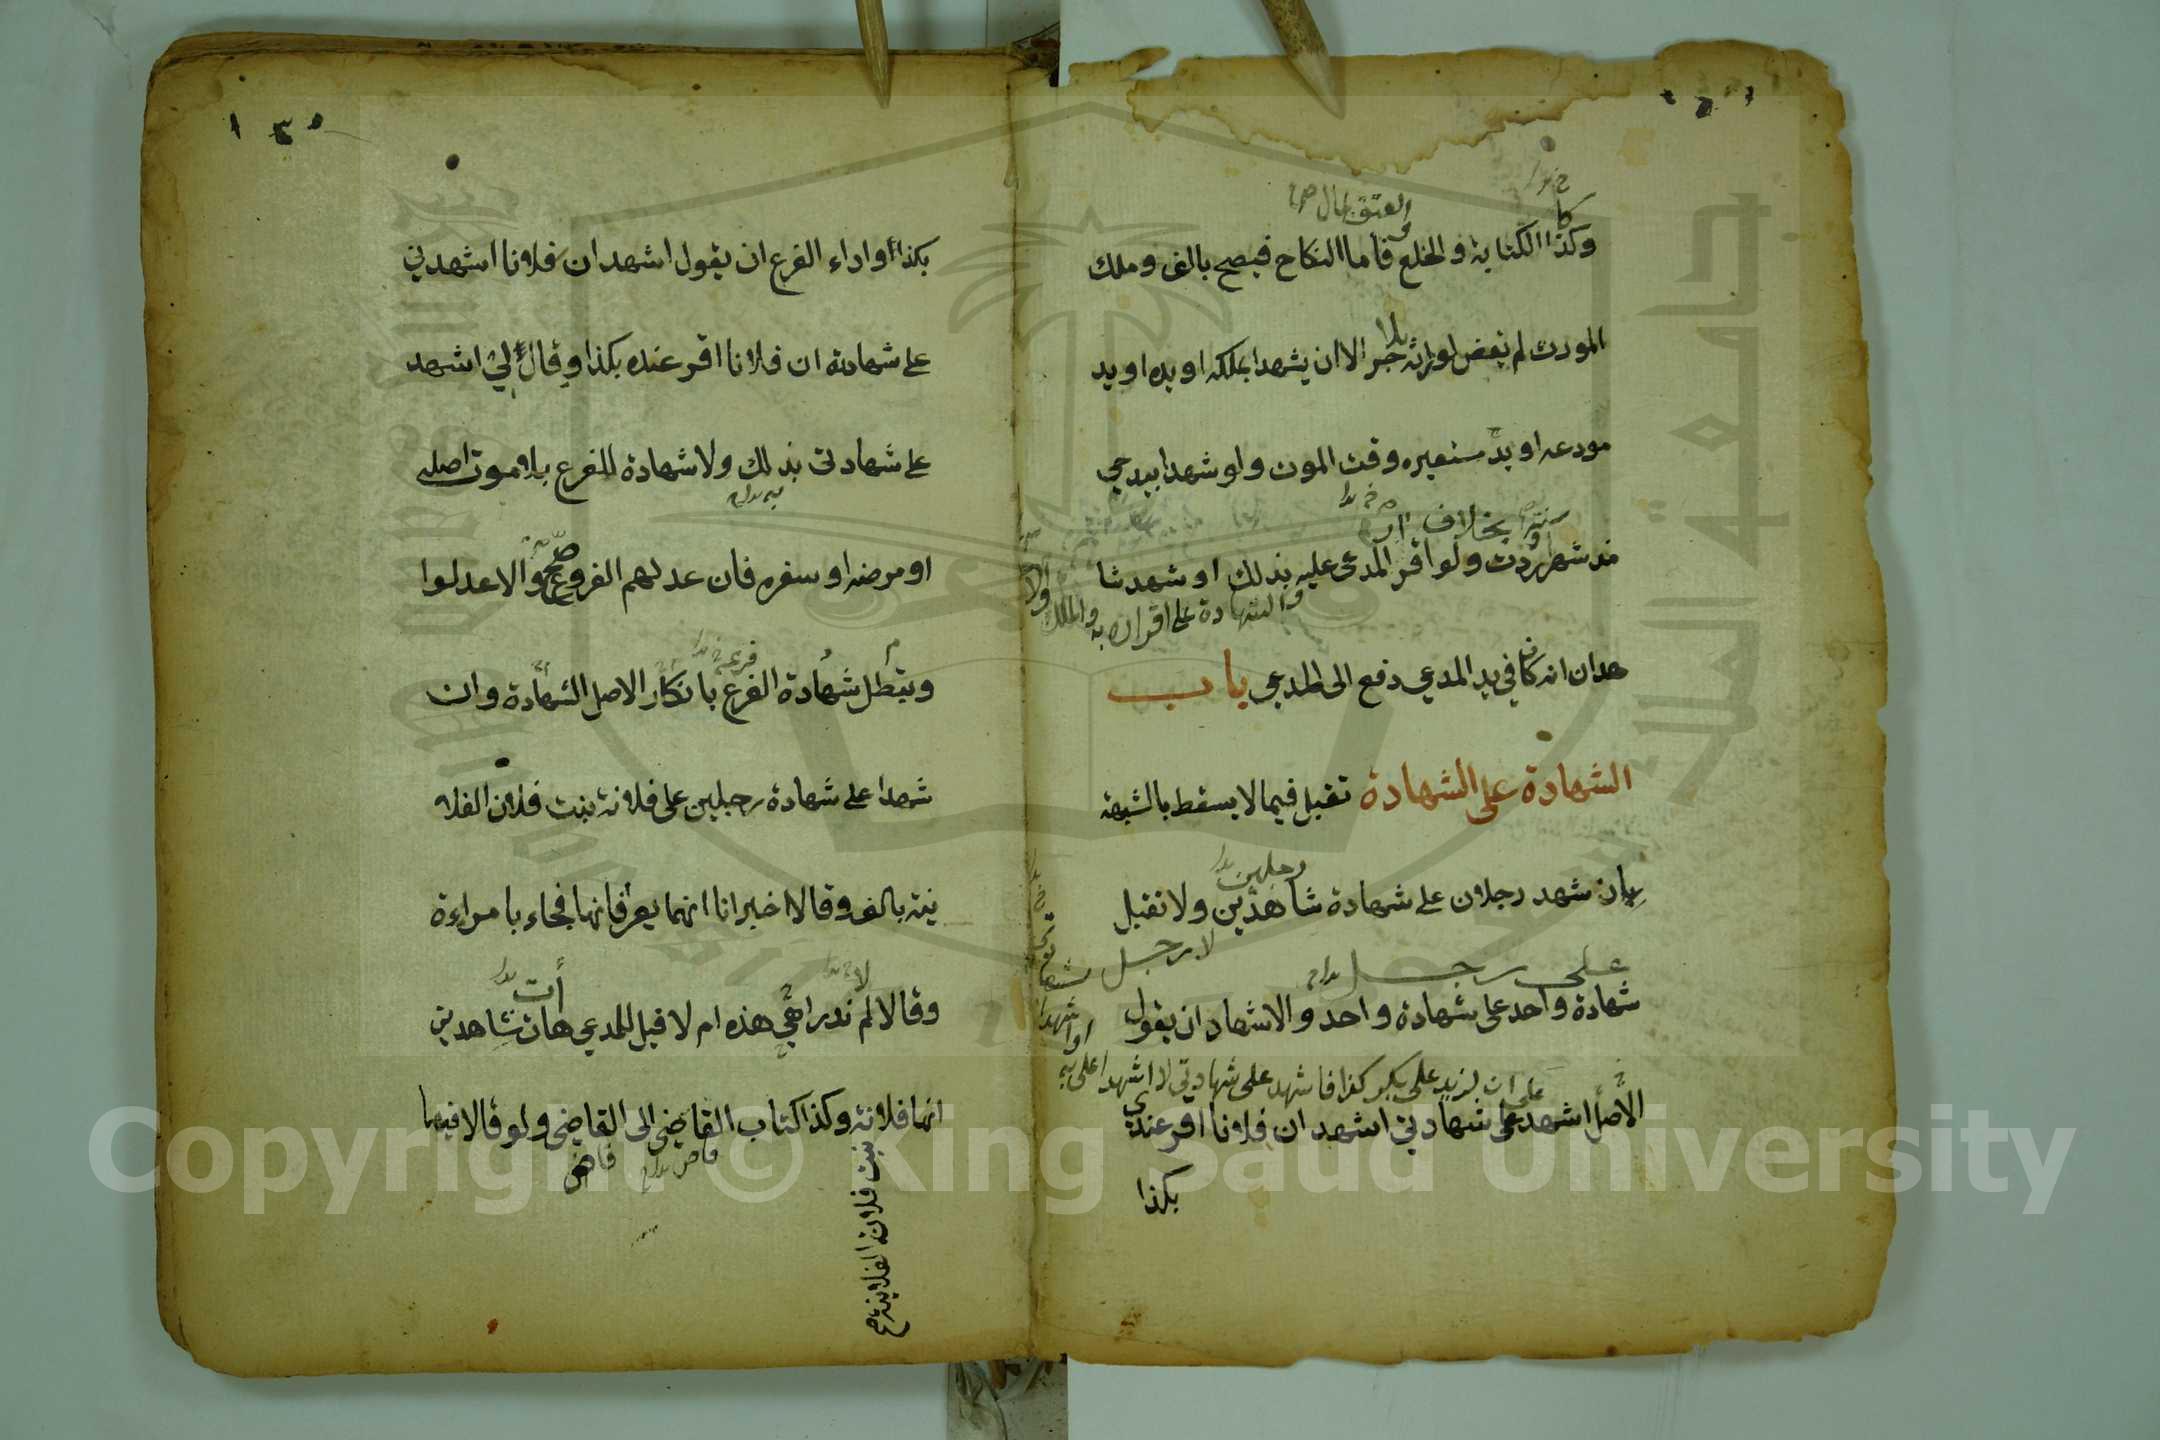 وكذا الكتابة والخلع فاما النكاح فيصح بالف وملك
المورث لم يقض لوارثه بلا جر الا ان يشهدا بملكه او يده او يد
مودعه او يد مستعيره وقت الموت ولو شهدا بيد حي
مذ شهر ردت ولو اقر المدعى عليه بذلك او شهد شا
هدان انه كان في يد المدعي دفع الى المدعي باب
الشهادة على الشهادة تقبل فيما لا يسقط بالشبهة
بان شهد رجلان على شهادة شاهدين ولا تقبل
شهادة واحد على شهادة واحد والاشهاد ان يقول
الاصل اشهد على شهادتي اشهد ان فلانا اقر عندي
بكذا
١٣٥
بكذا واداء الفرع ان يقول اشهد ان فلانا اشهدني
على شهادته ان فلانا اقر عنده بكذا وقال لي اشهد
على شهادتي بذلك ولا شهادة للفرع بلا موت اصله
او مرضه او سفره فان عدلهم الفروع صح والا عدلوا
وتبطل شهادة الفرع بانكار الاصل الشهادة وان
شهدا على شهادة رجلين على فلانة بنت فلان الفلا
نية بالف وقالا اخبرانا انهما يعرفانها فجاء بامراءة
وقالا لم ندر اهي هذه ام لا قيل للمدعي هات شاهدين
انها فلانة وكذا كتاب القاضي الى القاضي ولو قالا فيهما
بنت فلان الفلانية